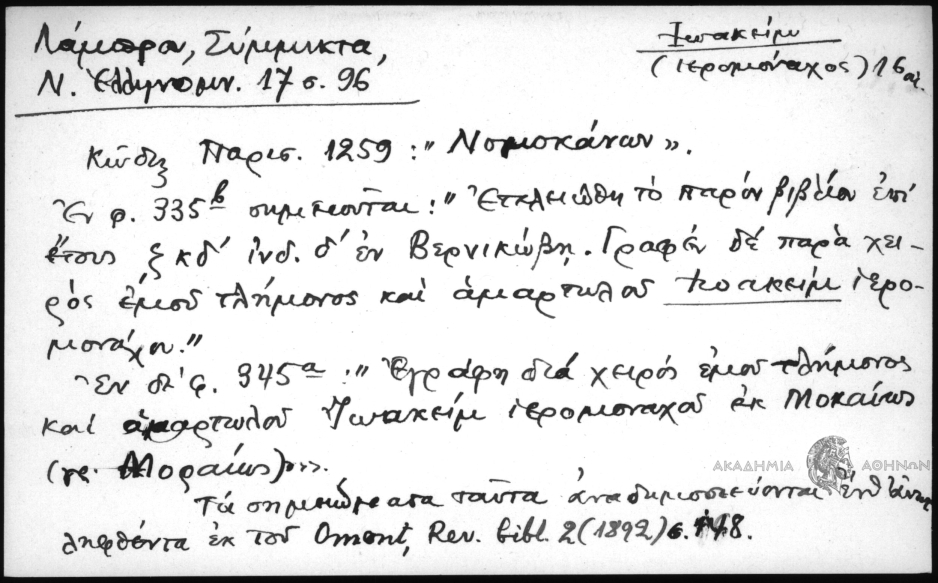 Λάμπρου, Σύμμικτα,
Ν. Ἑλληνομν. 17 σ. 96
Ἰωακείμ
(ἱερομόναχος) 16 αἰ.
Κώδιξ Παρισ. 1259 : "Νομοκάνων».
Ἐν φ. 335β σημειοῦται : "Ἐτελειώθη τὸ παρόν βιβλίον ἐπί
ἔτους ζκδ' ἰνδ. δ' ἐν Βερνικώβῃ. Γραφέν δέ παρὰ χει-
ρός ἐμοῦ τλήμονος καί ἁμαρτωλοῦ Ἰωακείμ ἱερο-
μονάχου."
Ἐν δέ φ. 345α : "Ἐγράφη διά χειρός ἐμοῦ τλήμονος
καί ἁμαρτωλοῦ Ἰωακείμ ἱερομοναχοῦ ἐκ Μοκαίως
(γρ. Μοραίως)»».
Τά σημειώματα ταῦτα ἀναδημοσιεύονται
ληφθέντα ἐκ τοῦ Omont, Rev. bibl. 2 (1892) σ. 148.
ΑΚΑΔΗΜΙΑ ΑΘΗΝΩΝ